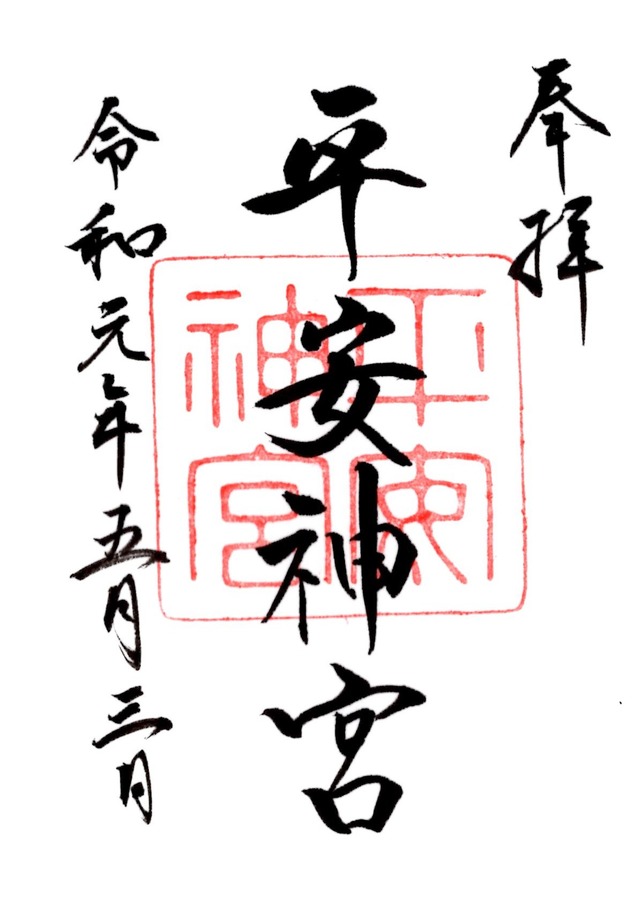 奉拝
平安神宮
平安
神宮
令和元年五月三日